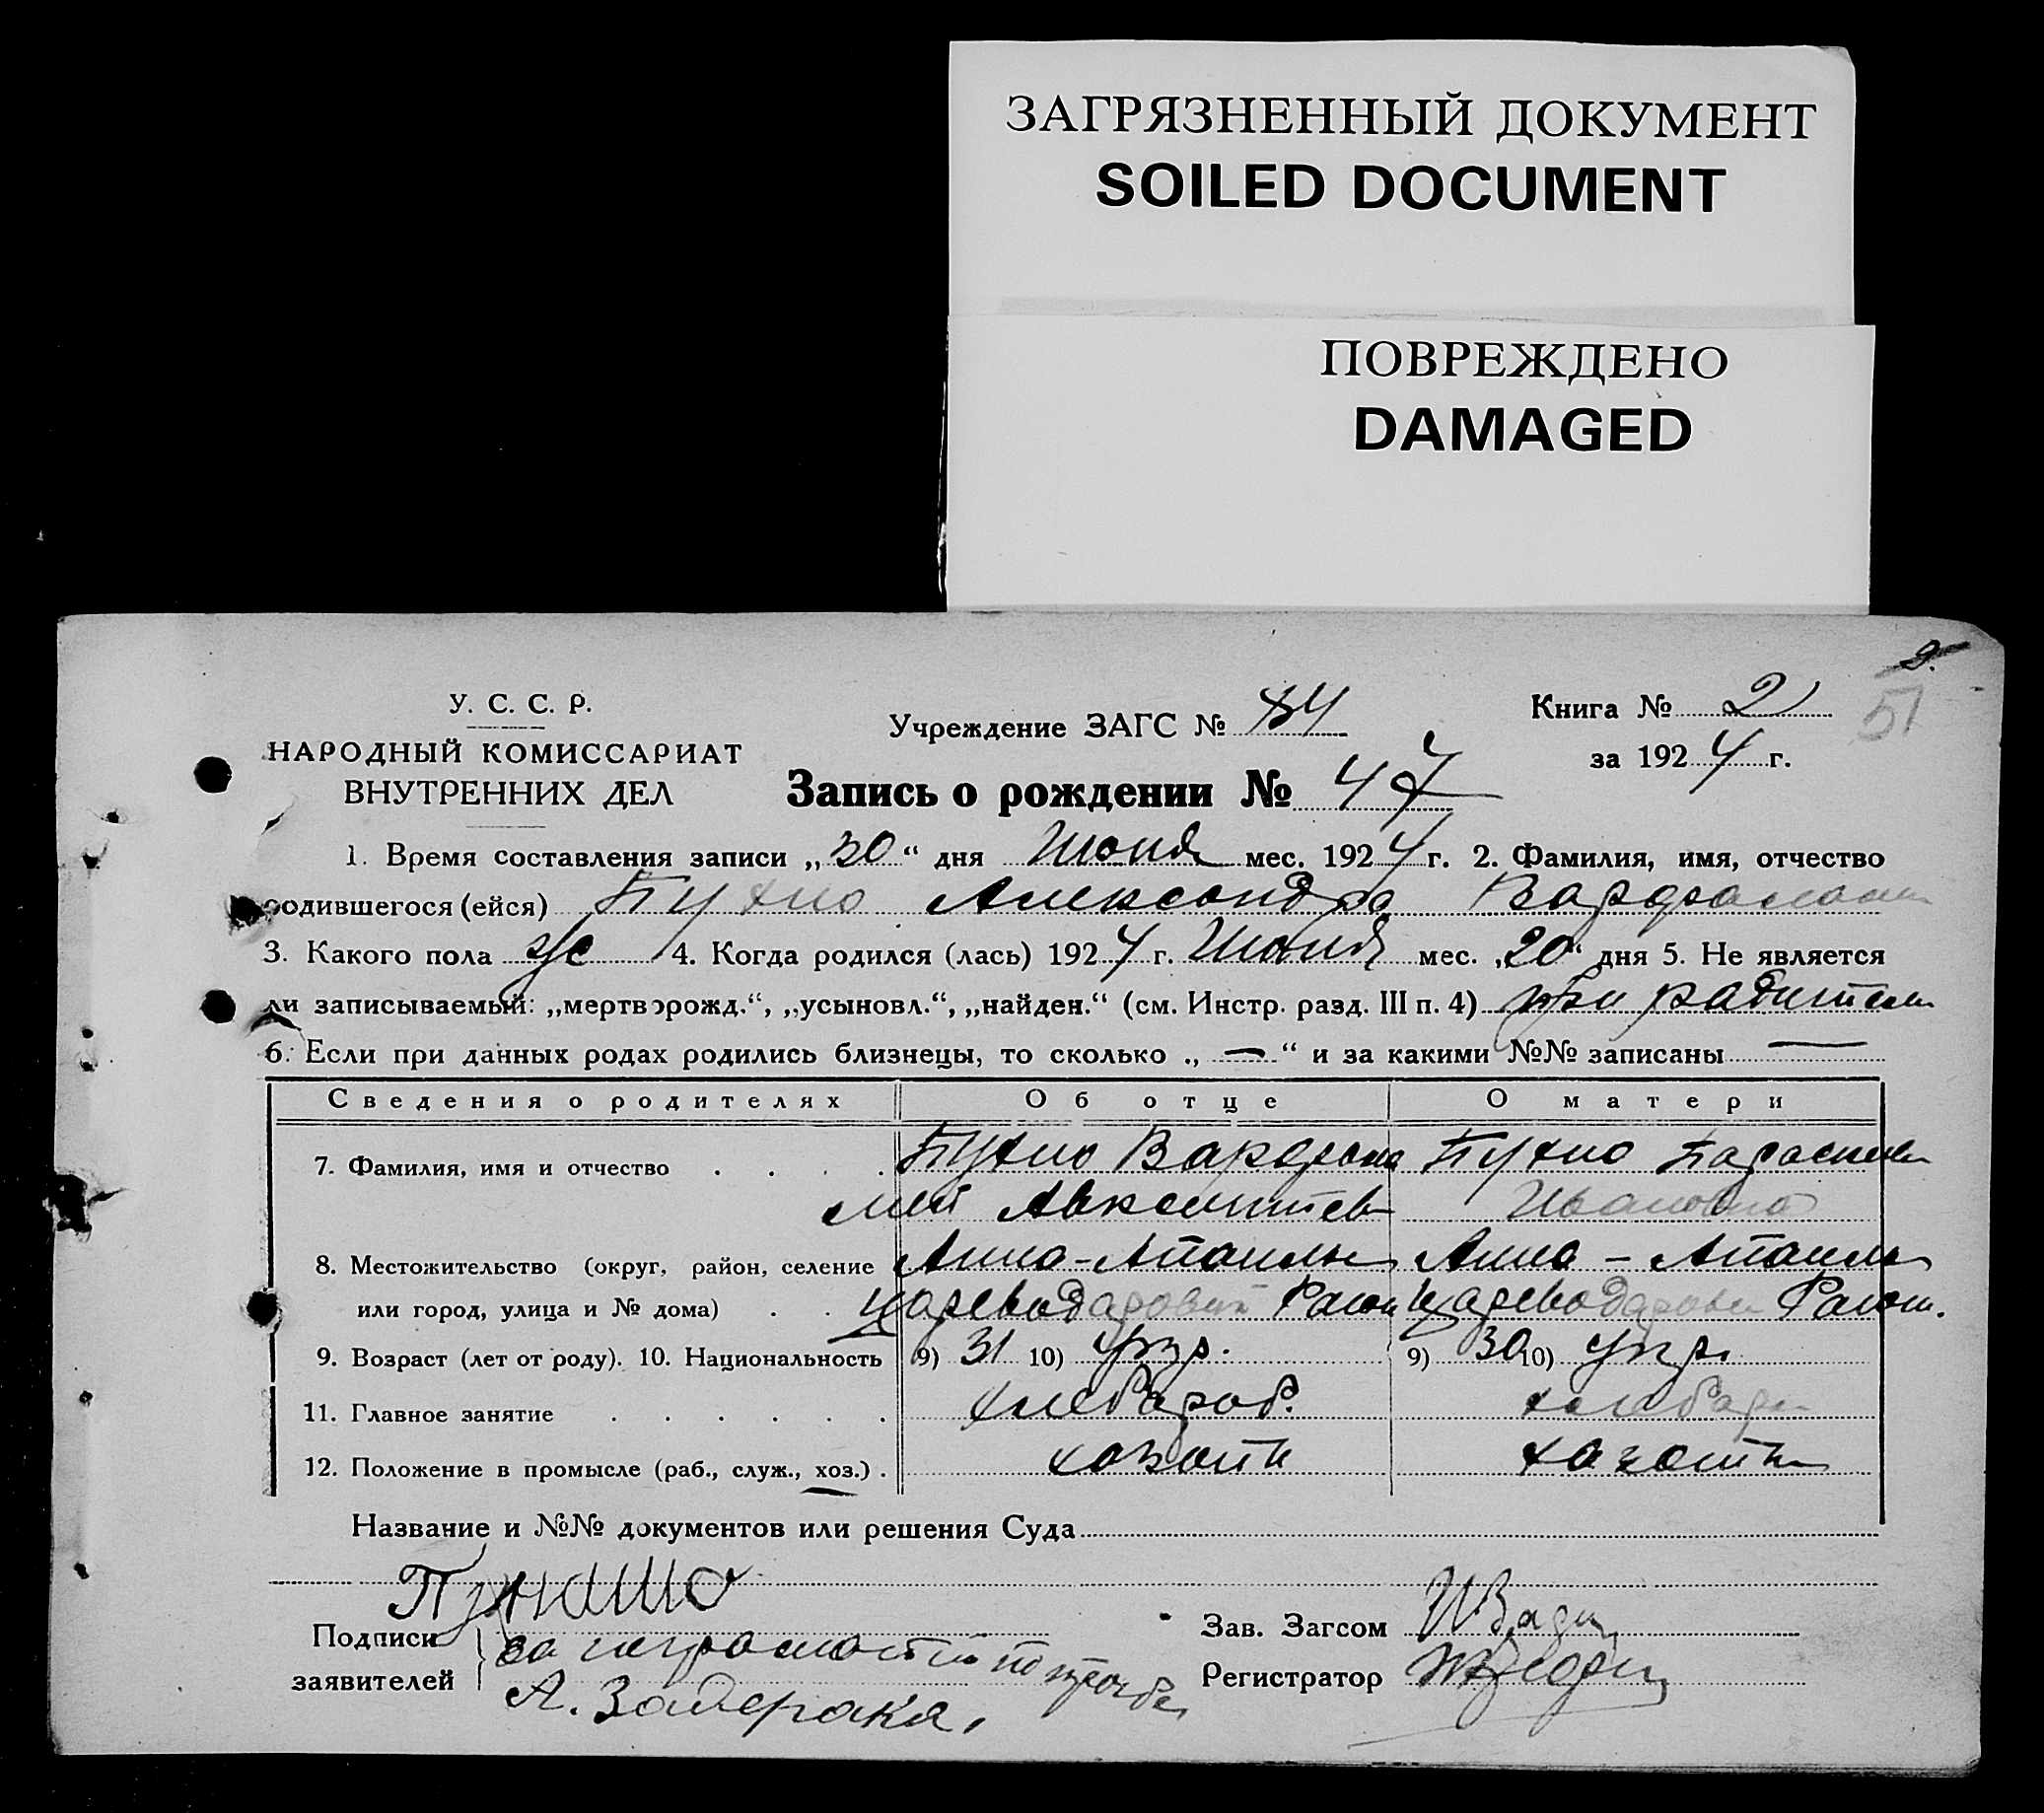 ЗАГРЯЗНЕННЫЙ ДОКУМЕНТ
SOILED DOCUMENT
ПОВРЕЖДЕНО
DAMAGED
51
У. С. С. Р.
НАРОДНЫЙ КОМИССАРИАТ
ВНУТРЕННИХ ДЕЛ
Учреждение ЗАГС № 84
Книга № 2
за 1924 г.
Запись о рождении № 47
1. Время составления записи „30“ дня Июня мес. 1924 г. 2. Фамилия, имя, отчество
родившегося (ейся) Пухно Александра
3. Какого пола жс 4. Когда родился (лась) 1924 г. Июня мес. „20“ дня 5. Не является
ли записываемый: „мертворожд.“, „усыновл.“, „найден.“ (см. Инстр. разд. III п. 4) при родител
6. Если при данных родах родились близнецы, то сколько „—“ и за какими №№ записаны —
Сведения о родителях Об отце О матери
7. Фамилия, имя и отчество . . . . Пухно Варфоло Пухно Параскева
мей Авксентьев Ивановна
8. Местожительство (округ, район, селение Анно- Анно -
или город, улица и № дома) . . Цареводаровский Район Цареводаровск Район.
9. Возраст (лет от роду). 10. Национальность 9) 31 10) укр. 9) 30 10) укр.
11. Главное занятие . . . . . . хлебароб.
12. Положение в промысле (раб., служ., хоз.) . хозяин
Название и №№ документов или решения Суда
Подписи заявителей
за неграмотн по прозьбе
А. Задерака,
Зав. Загсом
Регистратор